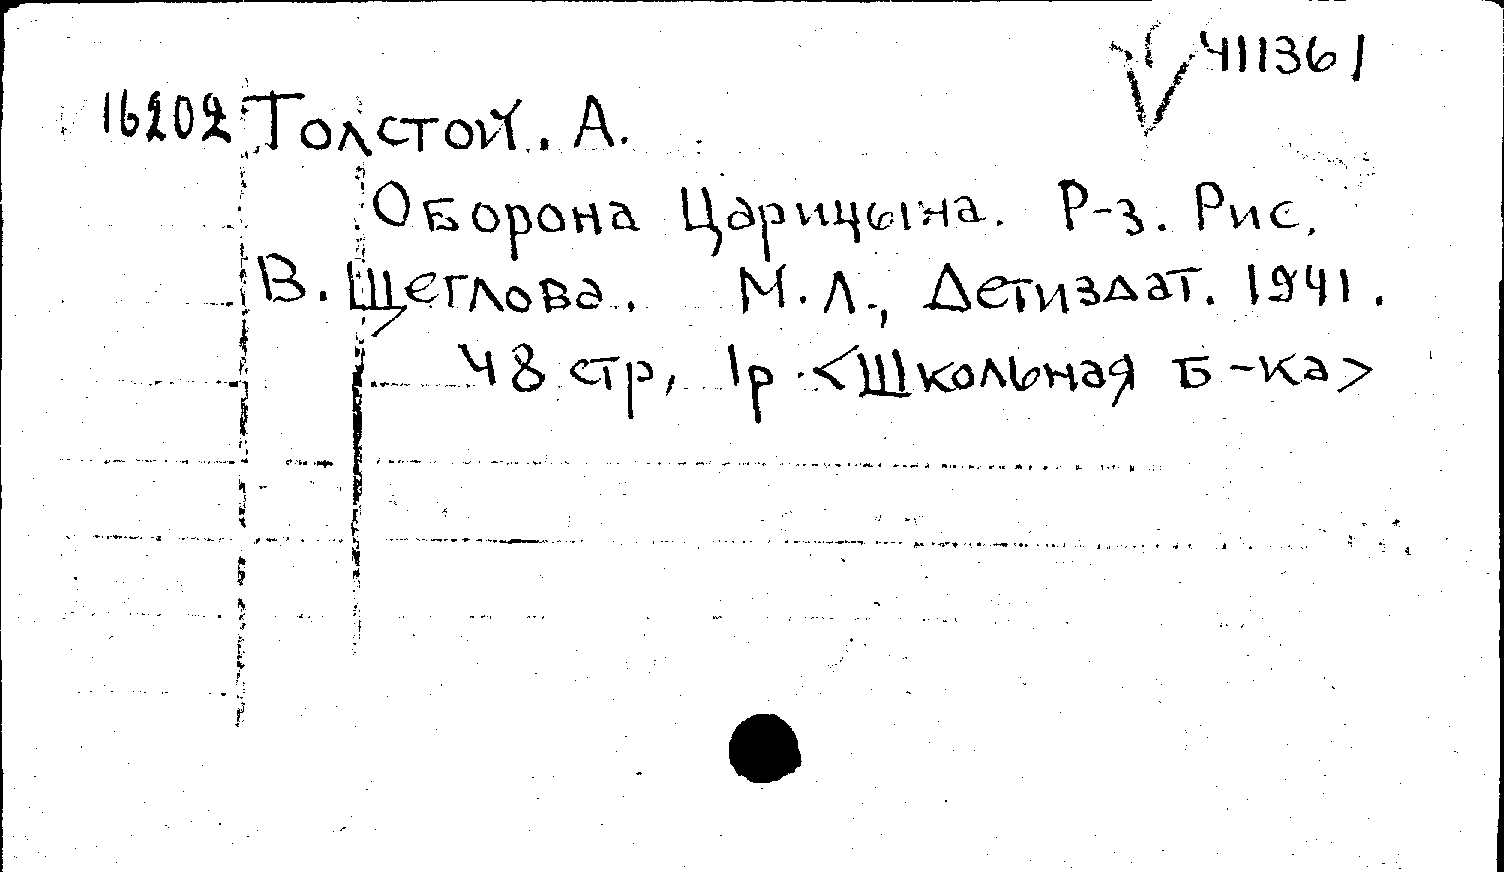 V 411361
16202 Толстой. А.
Оборона Царицына. Р-з. Рис.
В. Щеглова. М.Л., Детиздат. 1941.
48 стр, 1р. <Школьная б-ка>